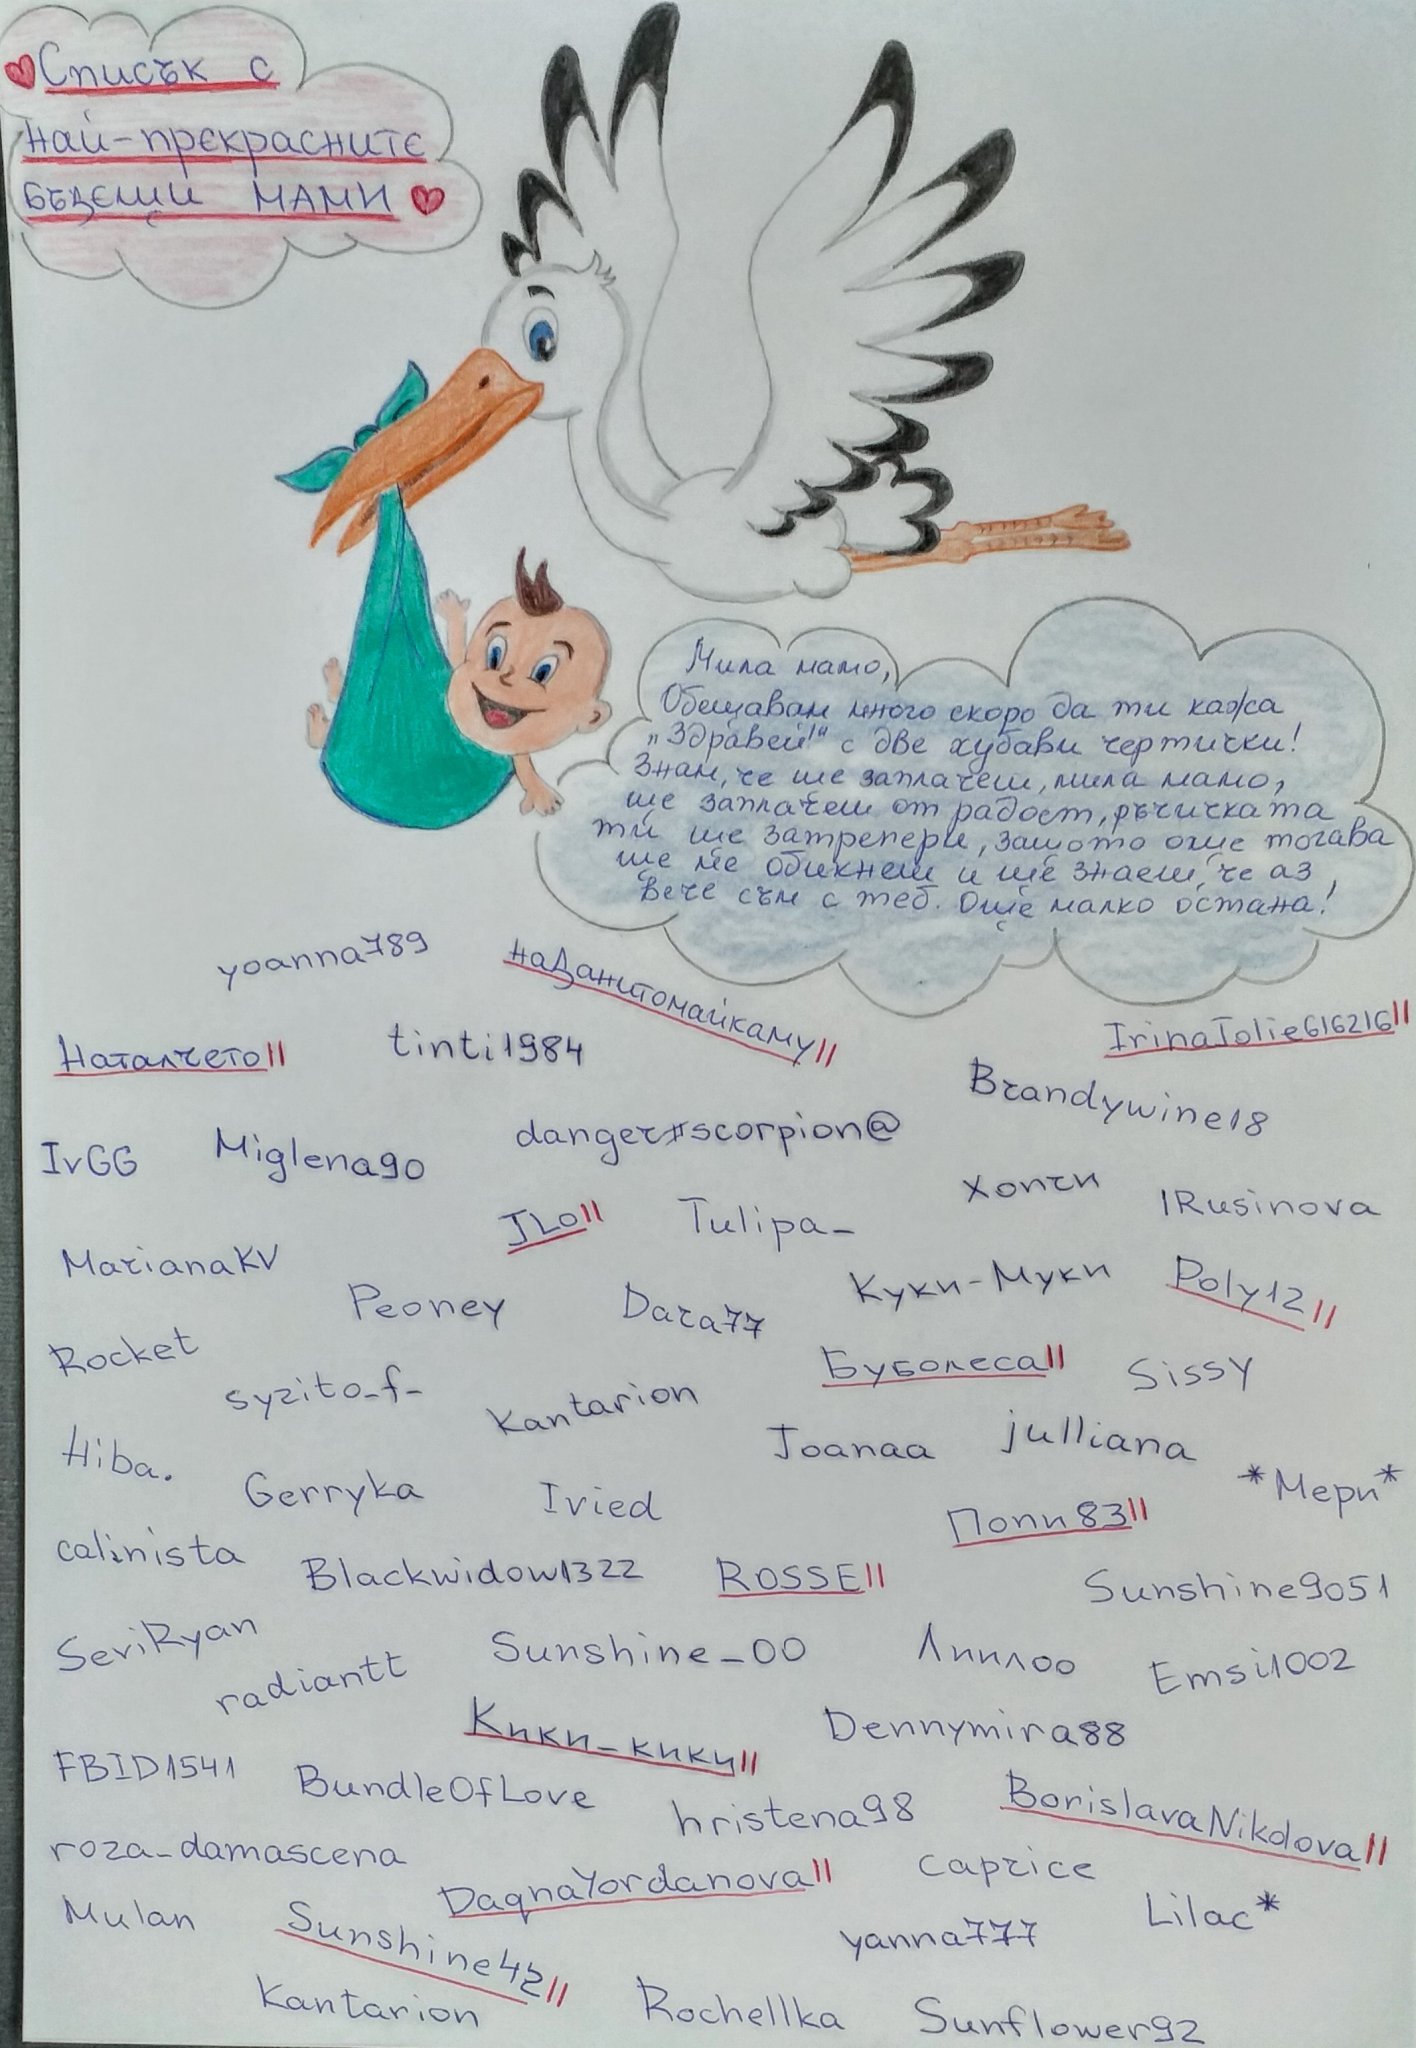 Списък с
най-прекрасните
бъдещи МАМИ
Мила мамо,
Обещавам много скоро да ти кажа
„Здравей!“ с две хубави чертички!
Знам, че ще заплачеш, мила мамо,
ще заплачеш от радост, ръчичката
ти ще затрепери, защото още тогава
ще ме обикнеш и ще знаеш, че аз
вече съм с теб. Още малко остана!
yoanna789
наДанитомайкаму||
Наталчето||
tinti1984
IrinaJolie616216||
Brandywine18
IvGG
Miglena90
danger#scorpion@
хопчи
IRusinova
JLo||
Tulipa_
MarianaKV
Peoney
Dara77
Куки-Муки
Poly12||
Rocket
syzito_f_
Kantarion
Буболеса||
Sissy
Hiba.
Gerryka
Ivied
Joanaa
julliana
*Мери*
calinista
Blackwidow1322
ROSSE||
Попи83||
Sunshine9051
SeviRyan
radiantt
Sunshine_00
Лиилоо
Emsi1002
Кики-кики||
Dennymira88
FBID1541
BundleOfLove
hristena98
BorislavaNikolova||
roza_damascena
DaqnaYordanova||
caprice
Mulan
Sunshine42||
yanna777
Lilac*
Kantarion
Rochellka
Sunflower92